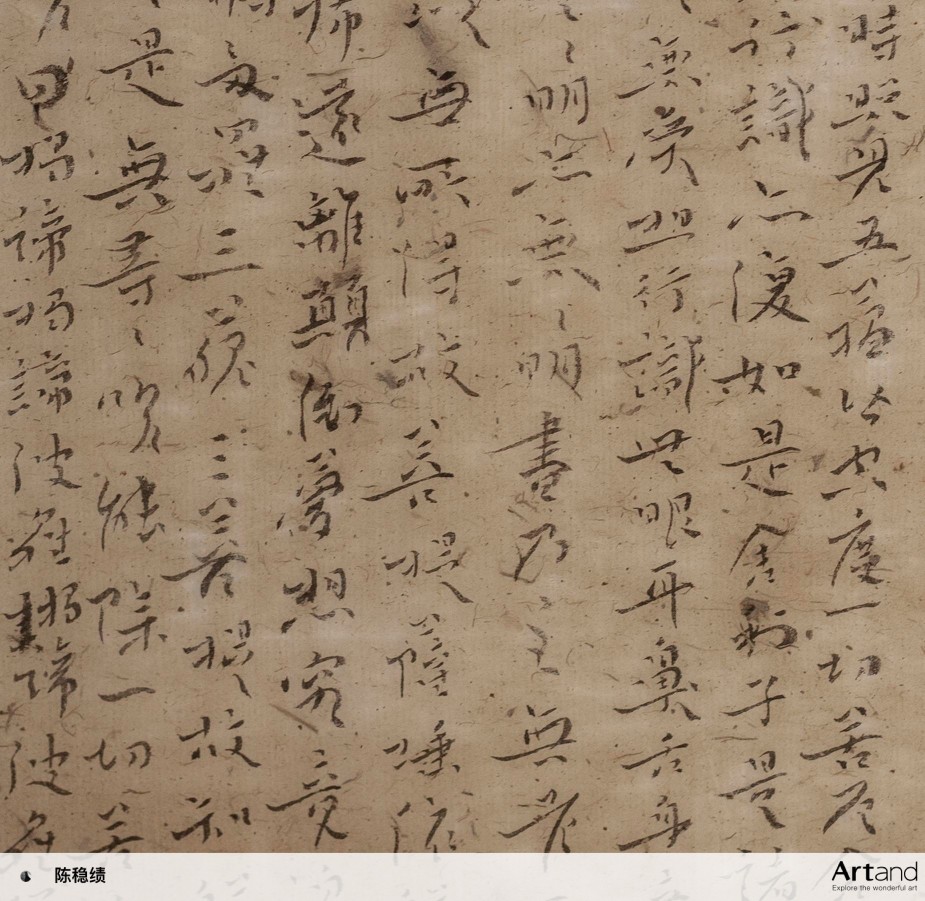 時照見五蘊皆空度一切苦厄
行識亦復如是舍利子是
無受想行識無眼耳鼻舌身
明亦無〻明盡乃至無老
無所得故菩提薩埵依
怖遠離顛倒夢想究竟
多羅三藐三菩提故知
是無等〻呪能除一切苦
曰揭諦揭諦波羅揭諦波羅
陈稳绩
Artand
Explore the wonderful art